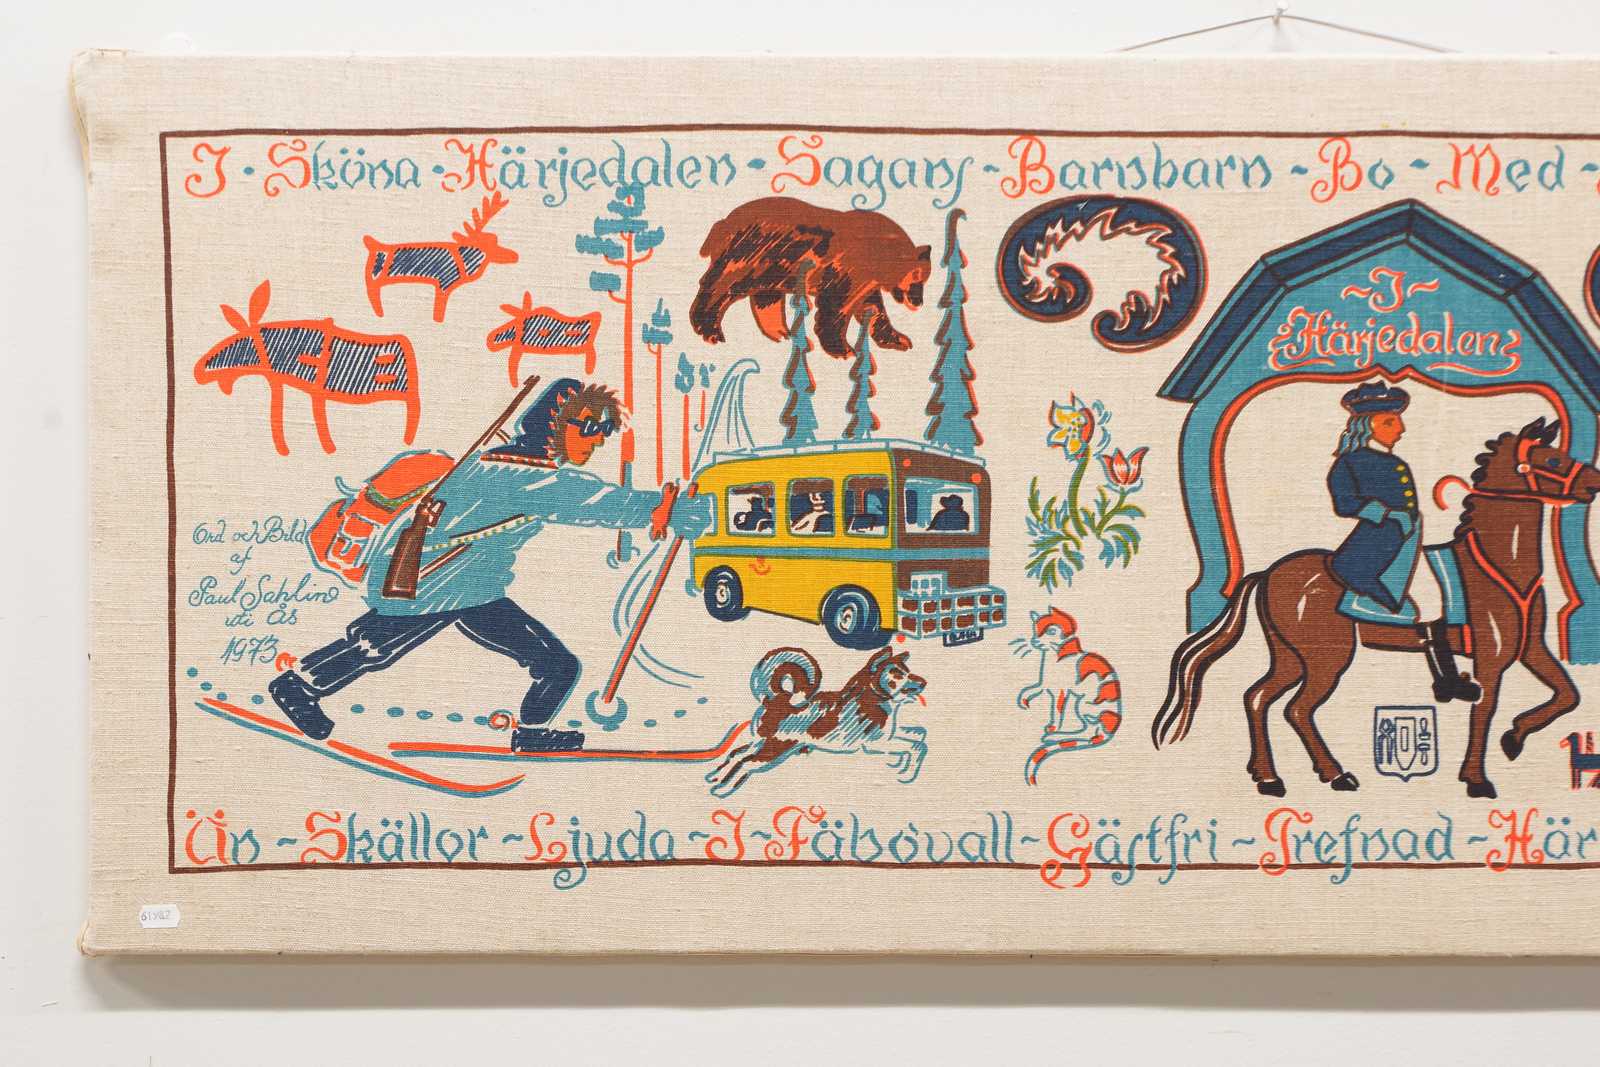 I · Sköna · Härjedalen - Sagans - Barnbarn - Bo - Med -
I
Härjedalen
Ord och Bild
af
Paul Sahlin
uti Ås
1973
Än - Skällor - Ljuda - I - Fäbovall - Gästfri - Trefnad - Här